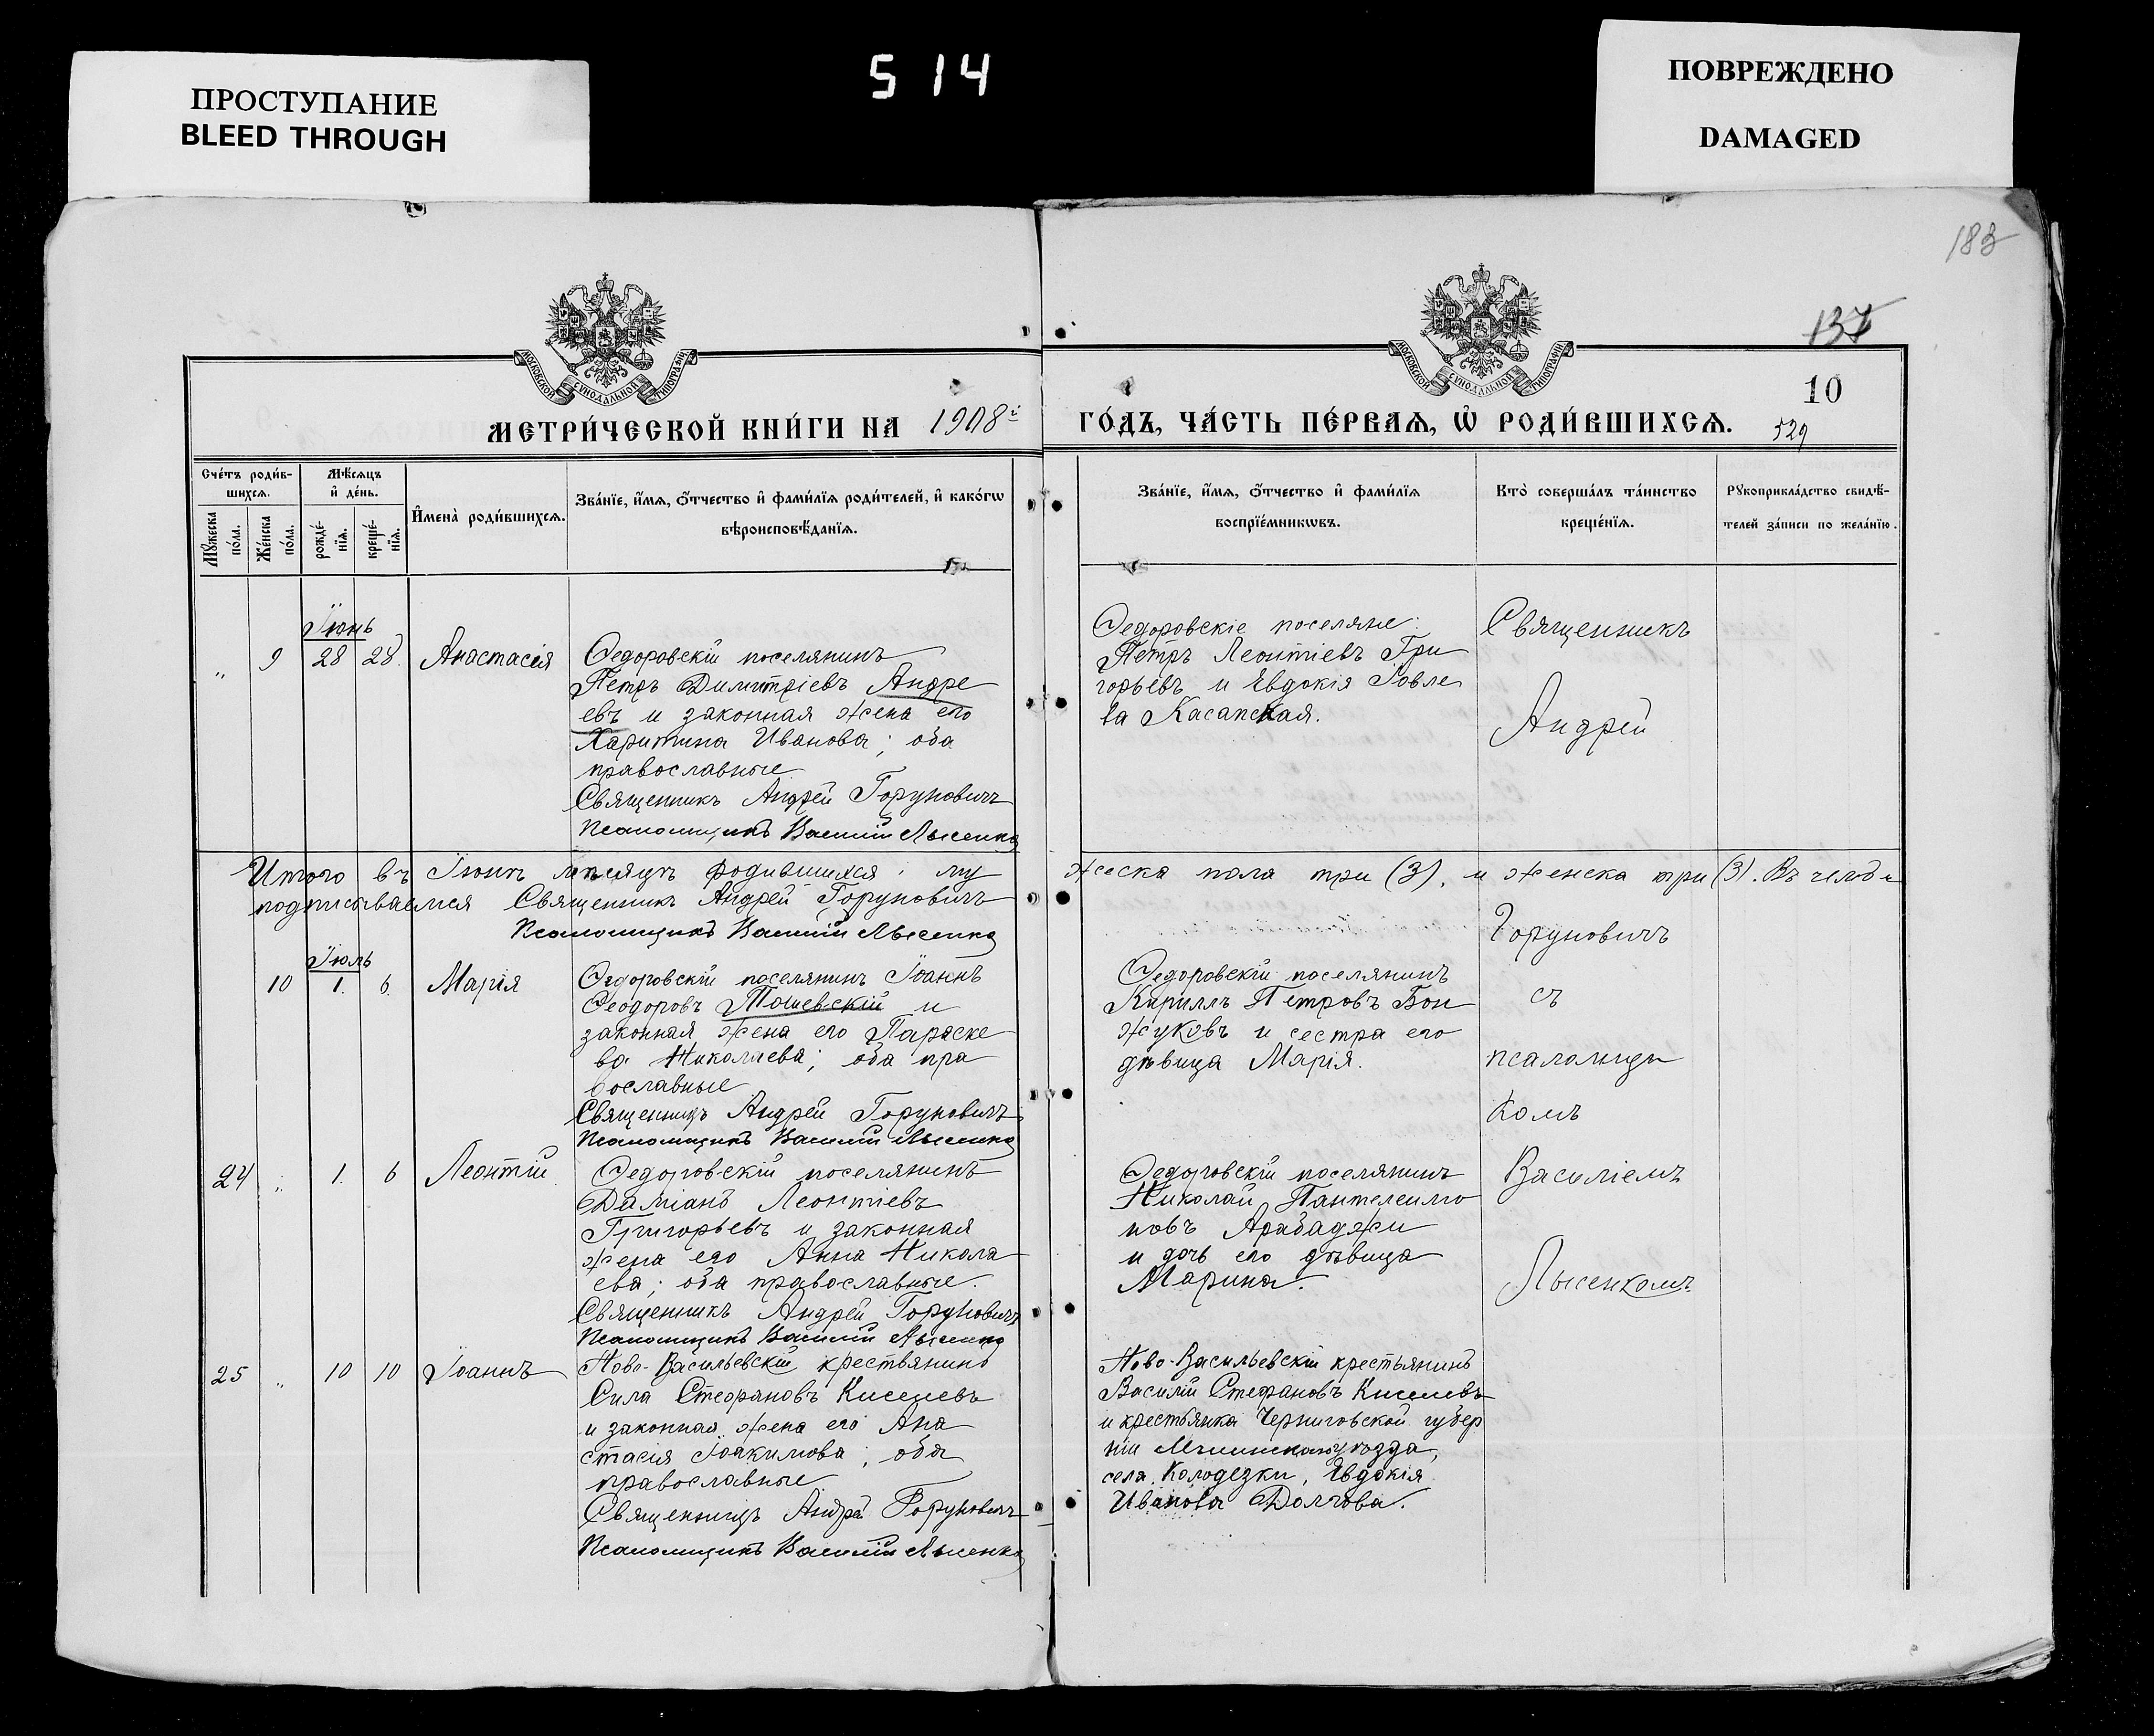 ПРОСТУПАНИЕ
BLEED THROUGH
514
ПОВРЕЖДЕНО
DAMAGED
183
137
МОСКОВСКОЙ СѴНОДАЛЬНОЙ ТИПОГРАФІИ
МОСКОВСКОЙ СѴНОДАЛЬНОЙ ТИПОГРАФІИ
10
МЕТРИ́ЧЕСКОЙ КНИ́ГИ НА 1908й
ГО́ДЪ, ЧА́СТЬ ПЕ́РВАѦ, Ѡ҆ РОДИ́ВШИХСѦ.
529
Сче́тъ роди́в-
шихсѧ.
Мѣ́сѧцъ
и҆ де́нь.
И҆мена̀ роди́вшихсѧ.
Зва́нїе, и҆́мѧ, ѻ҆́тчество и҆ фами́лїѧ роди́телей, и҆ како́гѡ
вѣроисповѣ́данїѧ.
Мꙋ́жеска
по́ла.
Же́нска
по́ла.
рожде́-
нїѧ.
креще́-
нїѧ.
Зва́нїе, и҆́мѧ, ѻ҆́тчество и҆ фами́лїѧ
воспрїе́мникѡвъ.
Кто̀ соверша́лъ та́инство
креще́нїѧ.
Рꙋкоприкла́дство свидѣ́-
телей за́писи по жела́нїю.
Іюнь
" 9 28 28. Анастасія
Ѳедоровскій поселянинъ
Петръ Димитріевъ Андре
евъ и законная жена его
Харитина Иванова; оба
православные
Священникъ Андрей Горуновичъ
Псаломщикъ Василій Лысенко
Ѳедоровскіе поселяне:
Петръ Леонтіевъ Гри
горьевъ и Евдокія Іовле
ва Касапская.
Священникъ
Андрей
Итого въ Іюнѣ мѣсяцѣ родившихся: му
жеска пола три (3), и женска три (3). Въ чемъ и
подписываемся Священникъ Андрей Горуновичъ
Псаломщикъ Василій Лысенко
Горуновичъ
Іюль
10 1. 6. Марія
Ѳедоровскій поселянинъ Іоаннъ
Ѳеодоровъ Тошевскій и
законная жена его Параске
ва Николаева; оба пра
вославные
Священникъ Андрей Горуновичъ
Псаломщикъ Василій Лысенко
Ѳедоровскій поселянинъ
Кириллъ Петровъ Бон
жуковъ и сестра его
дѣвица Марія.
съ
псаломщи
комъ
24 " 1. 6 Леонтій
Ѳедоровскій поселянинъ
Даміанъ Леонтіевъ
Григорьевъ и законная
жена его Анна Никола
ева; оба православные.
Священникъ Андрей Горуновичъ
Псаломщикъ Василій Лысенко
Ѳедоровскій поселянинъ
Николай Пантелеимо
новъ Арабаджи
и дочь его дѣвица
Марина.
Василіемъ
Лысенкомъ.
25 " 10 10 Іоаннъ
Ново-Васильевскій крестьянинъ
Сила Стефановъ Киселевъ
и законная жена его Ана
стасія Іоакимова; оба
православные
Священникъ Андрей Горуновичъ
Псаломщикъ Василій Лысенко
Ново-Васильевскій крестьянинъ
Василій Стефановъ Киселевъ
и крестьянка Черниговской губер
ніи Мглинскаго уѣзда,
села Колодезки, Евдокія
Иванова Долгова.